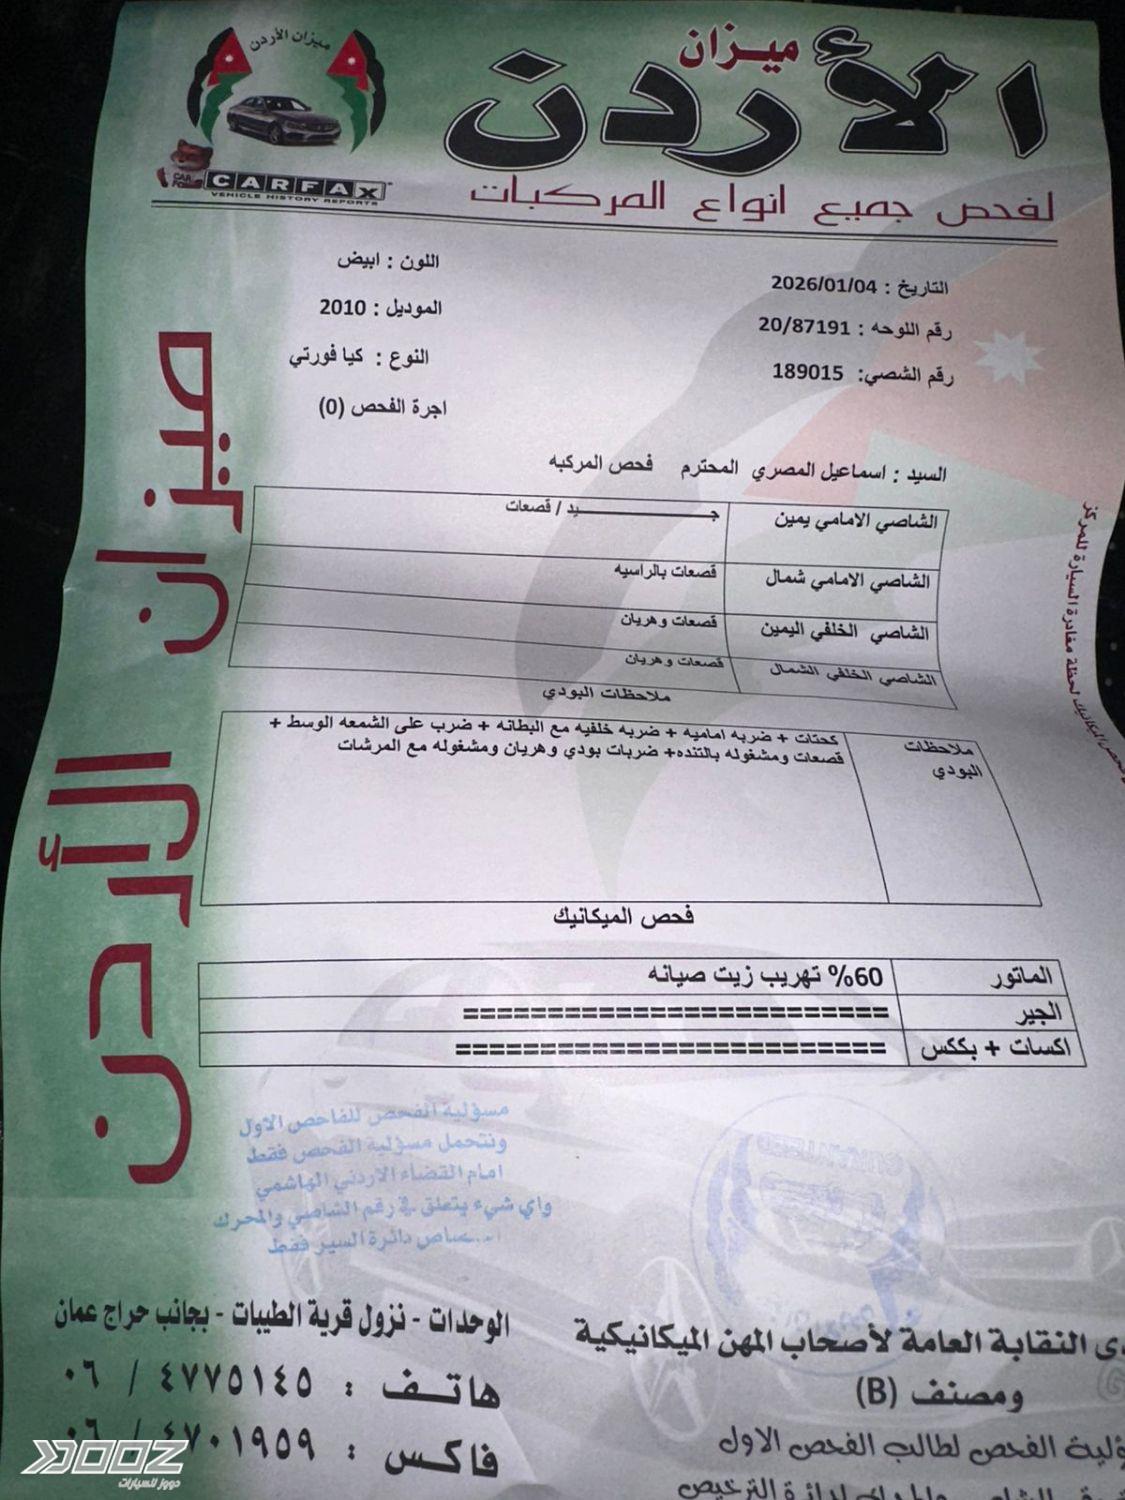 ميزان الأردن
ميزان
الأردن
CAR FOX
CARFAX
VEHICLE HISTORY REPORTS
لفحص جميع انواع المركبات
التاريخ : 2026/01/04
اللون : ابيض
رقم اللوحه : 20/87191
الموديل : 2010
رقم الشصي: 189015
النوع : كيا فورتي
اجرة الفحص (0)
السيد : اسماعيل المصري المحترم فحص المركبه
الشاصي الامامي يمين جـــــــيد / قصعات
الشاصي الامامي شمال قصعات بالراسيه
الشاصي الخلفي اليمين قصعات وهريان
الشاصي الخلفي الشمال قصعات وهريان
ملاحظات البودي
ملاحظات البودي
كحتات + ضربه اماميه + ضربه خلفيه مع البطانه + ضرب على الشمعه الوسط +
قصعات ومشغوله بالتنده+ ضربات بودي وهريان ومشغوله مع المرشات
فحص الميكانيك
الماتور 60% تهريب زيت صيانه
الجير =========================
اكسات + بككس =========================
ميزان الأردن
الميكانيك لحظة مغادرة السيارة للمركز
مسؤلية الفحص للفاحص الاول
ونتحمل مسؤلية الفحص فقط
امام القضاء الاردني الهاشمي
واي شيء يتعلق في رقم الشاصي والمحرك
دائرة السير فقط
GUARANTEED
الوحدات - نزول قرية الطيبات - بجانب حراج عمان
هاتـف : ٤٧٧٥١٤٥ / ٠٦
فاكس : ٤٧٠١٩٥٩ / ٠٦
النقابة العامة لأصحاب المهن الميكانيكية
ومصنف (B)
الفحص لطالب الفحص الاول
لدائرة الترخيص
DOOZ
دووز للسيارات